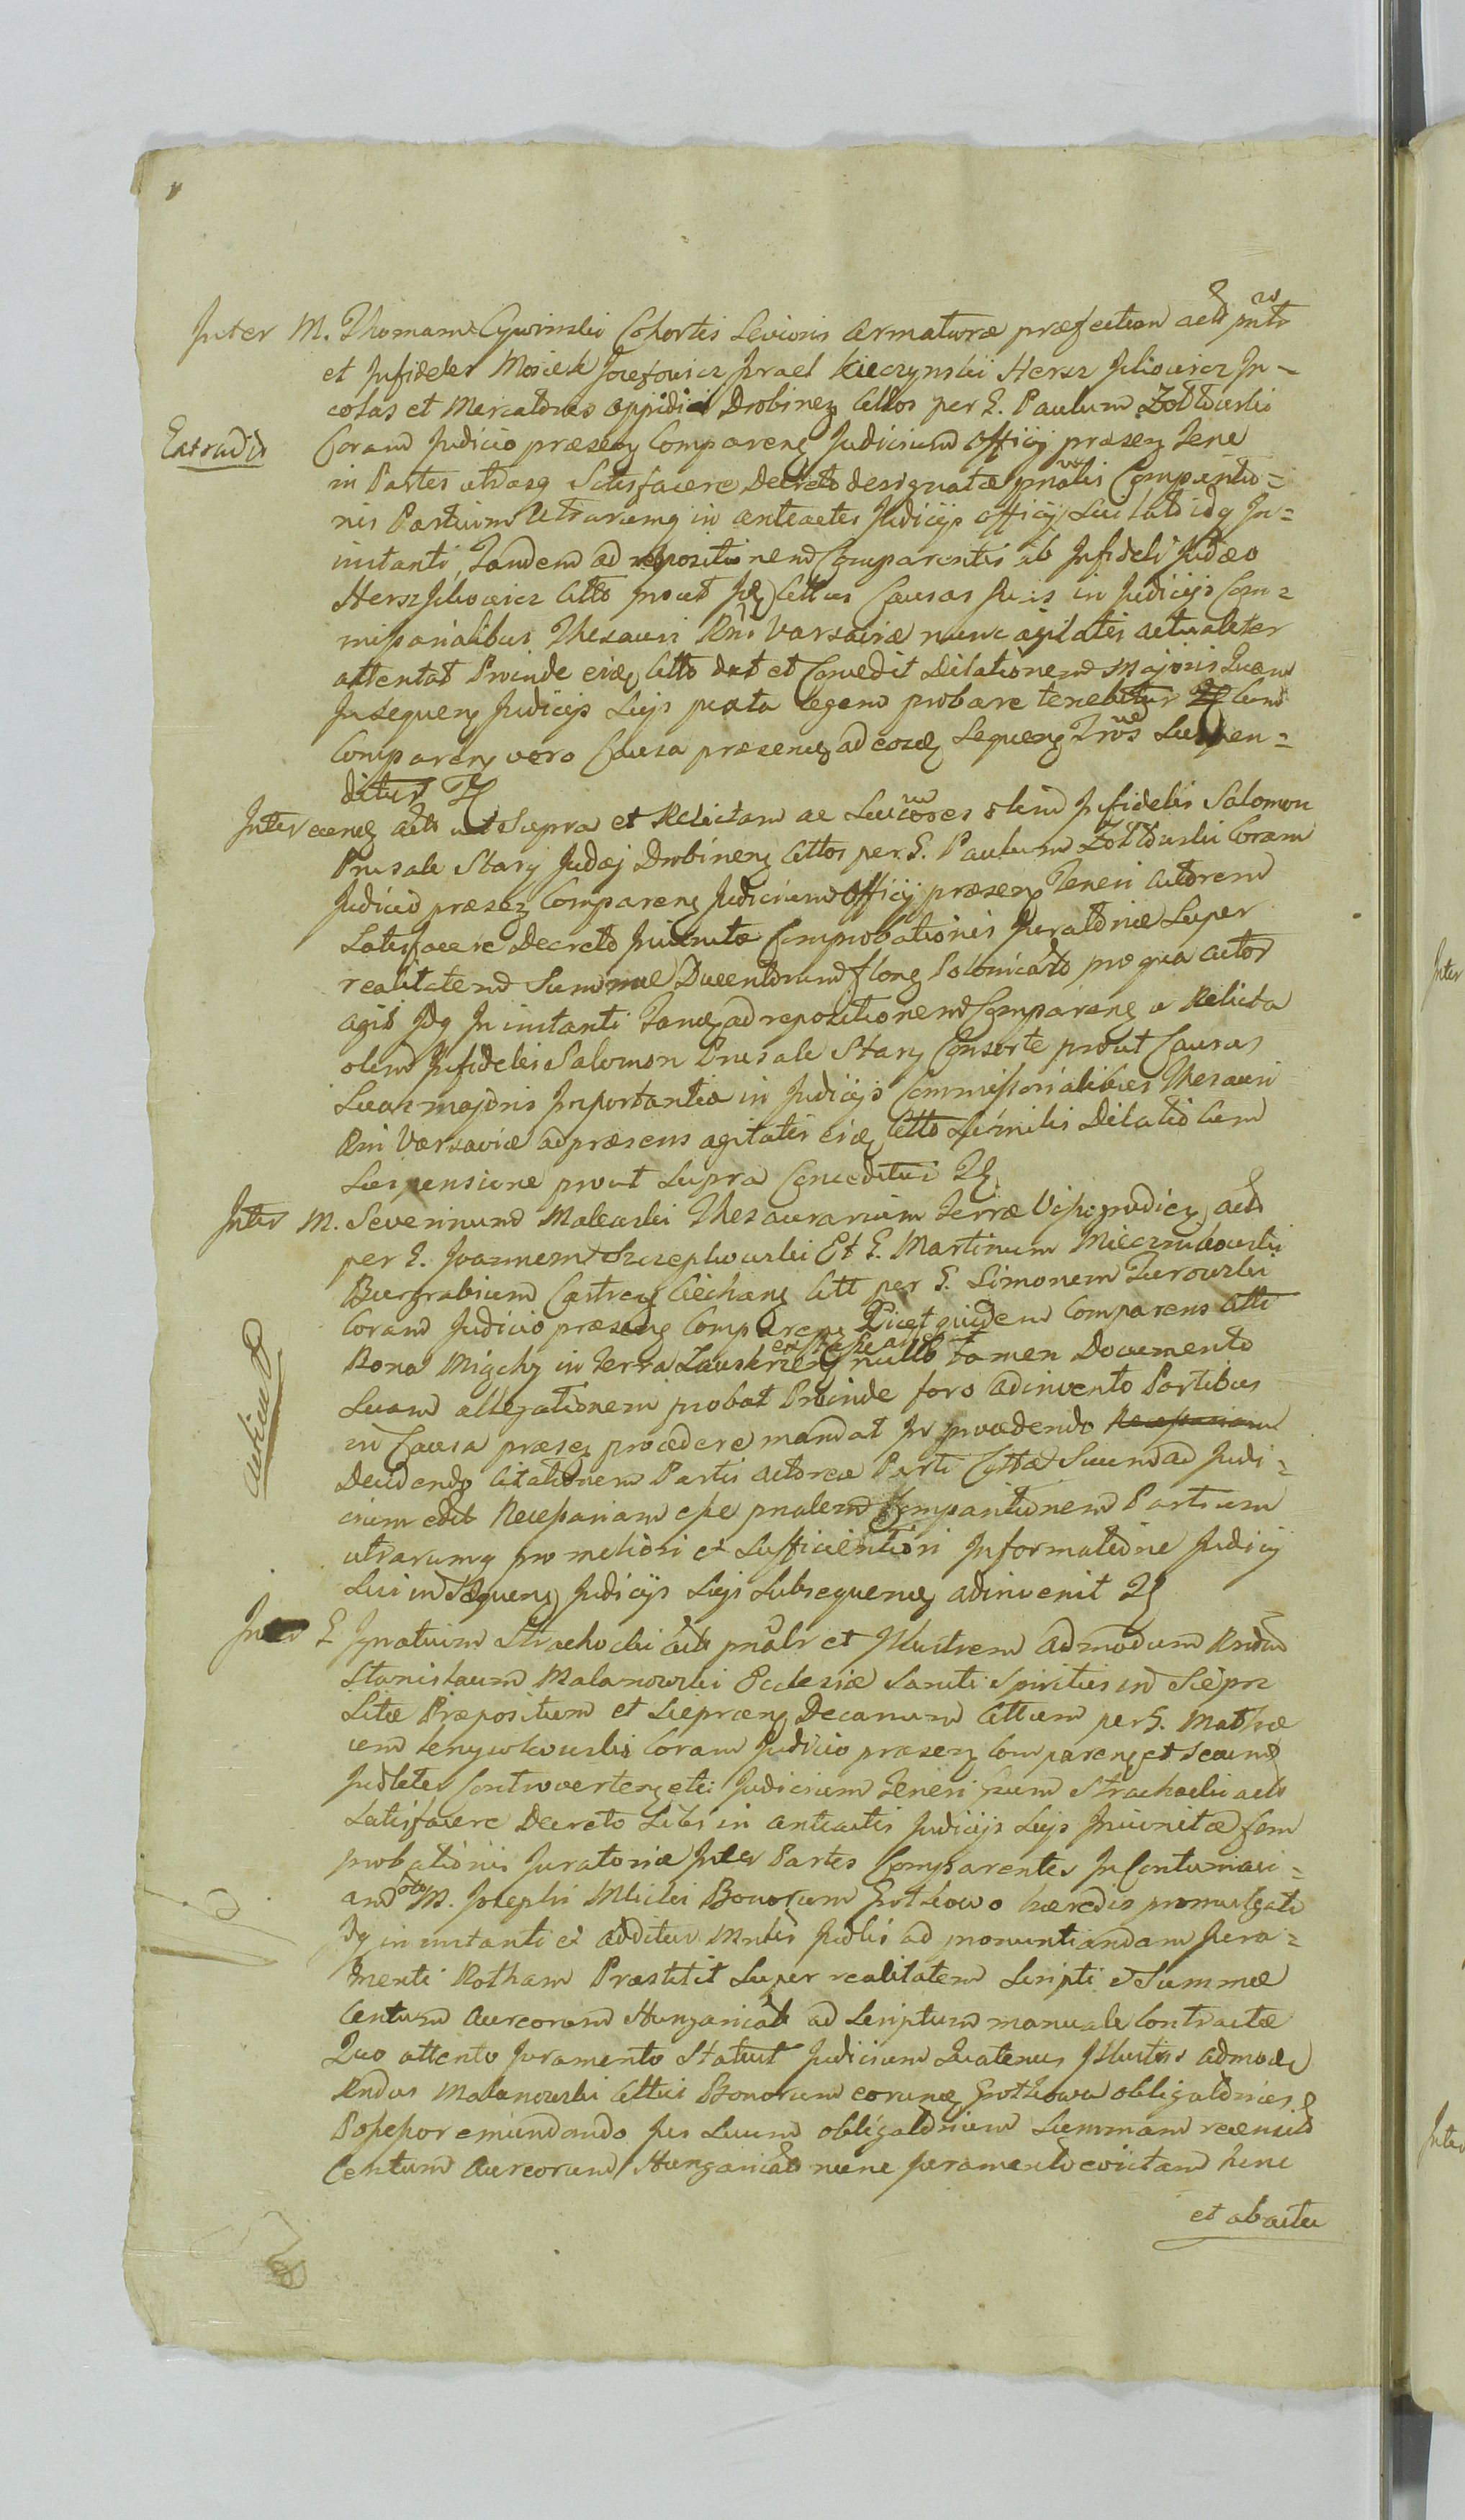 Inter M. Thomam Cywinski Cohortis Levioris Armaturæ præfectum actt pntr
et Infideles Mosiek Josefowicz Jzrael Kieczynskii Hersz Jcliowicz In-
colas et Mercatores oppidi Drobinen Cittos per G. Paulum Zołtowski
Extradit
Coram Judicio præsen Comparen Judicium Officij præsen Tene
in Partes utrasq Satisfacere Decreto designatæ pnalis Comparitio=
nis Partium Utrarumq in anteactis Judicijs officij Sui lato idq In=
instanti, Tandem ad repositionem Comparentis ab Infideli Judæo
Hersz Jcliowicz Citto prout Citus Causas Suas in Judicijs Com=
missorialibus Thesauri Rni Varsaviæ nunc agitatis actualiter
attentat Proinde Citto dat et Concedit Dilationem Majoris Quam
In sequen Judicijs Suis juxta legem probare tenebitur Cum
Comparen vero Causa præsen ad eosd Sequen Trnos Suspen=
ditur
Inter eund actt ut Supra et Relictam ac Succores olim Infidelis Salomon
Prusak Stary Judæj Drobinen Cittos per G. Paulum Zołtowski Coram
Judicio præsen Comparen Judicium Officij præsen Teneri actorem
Satisfacere Decreto Juiunctæ Comprobationis Juratoriæ Super
realitatem Summæ Ducentorum floren Polonicalo pro qua actor
agit Idq In instanti Tand ad repositionem Comparen a Relicta
olim Infidelis Salomon Prusak Stary Consorte prout Causas
Suas majoris Importantiæ in Judicijs Commissorialibus Thesauri
Rni Varsaviæ ad præsens agitatis Citto Similis Dilatio Cum
Suspensione prout Supra Conceditur
Inter M. Severinum Malewski Thesaurarium Terræ Vissogrodien actt
per G. Joannem Szczepkowski Et G. Martinum Miecznikowski
Burgrabium Castren Ciechan Citt per G. Simonem Turowski
Coram Judicio præsen Comparen Licet quidem Comparens Citti
Bona Migchy in Terra Zawskrzen nullo tamen Documento
Suam allegationem probat Proinde foro adinvento Partibus
in Causa præsen procedere mandat In procedendo Necessariam
Decidendo Citationem Partis actoreæ Parti Cittæ Suum ad Judi=
cium edit Necessariam esse pnalem Comparitionem Partium
utrarumq pro meliori et Sufficientiori Informatione Judicij
Sui in Sequen Judicijs Suis Subsequen adinvenit
Inter G Ignatium Strachocki actt pnalr et Illustrem admodum Rndum
Stanislaum Malanowski Ecclesiæ Sancti Spiritus in Sieprc
Sitæ Præpositum et Sieprcen Decanum Cittum per G. Mathæ
um Lenyskowski Coram Judicio præsen Comparen et Secum
Judlter Controverten Judicium Teneri Gsum Strachocki actt
Satisfacere Decreto Sibi in anteactis Judicijs Suis Iniunctæ Com
probationis Juratoriæ Inter Partes Comparentes In Contumaci=
am M. Josephi Mlicki Bonorum Grotkowo hæredis promulgati
Idq in instanti et additur Mntis Judlis ad pronuntiandam Jura=
menti Rotham Præstitit Super realitatem Scripti et Summæ
Centum Aureorum Hungaricalo ad Scriptum manuale Contractæ
Quo attento Juramento Statuit Judicium Quatenus Illustris admodu
Rndus Malanowski Cittus Bonorum eorund Grotkowo obligatorius
Possessor emundando Jus Suum obligatorium Summam recensit
Centum Aureorum Hungaricalo nunc Juramento evictam hinc
et ab actu